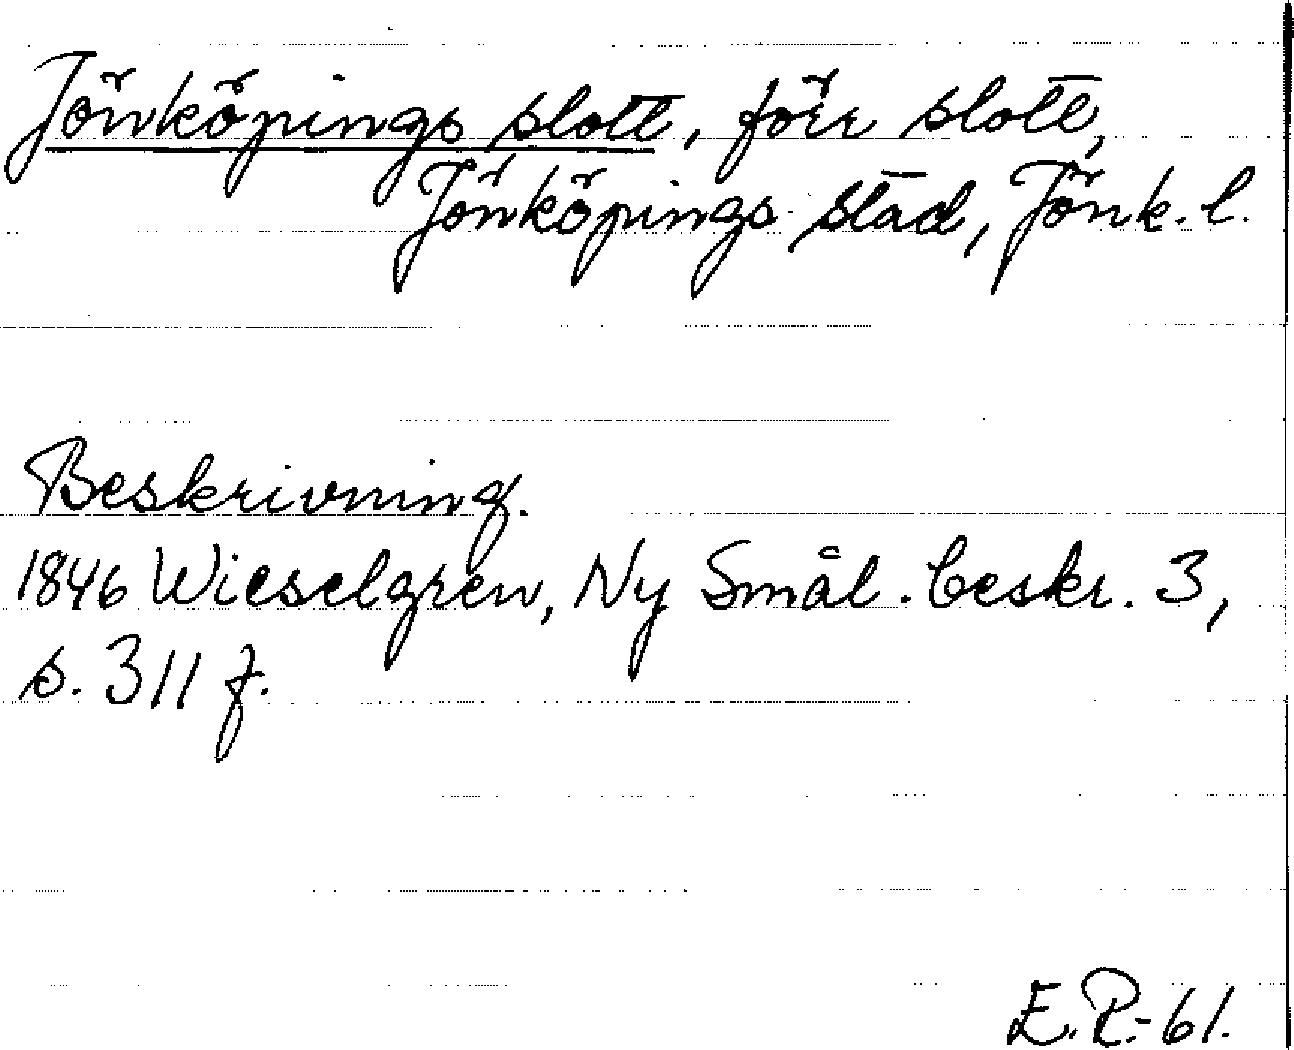 Jönköpings slott, förr slott,
Jönköpings stad, Jönk. l.
Beskrivning.
1846 Wieselgren, Ny Smål. beskr. 3,
s. 311 f.
E.P.-61.